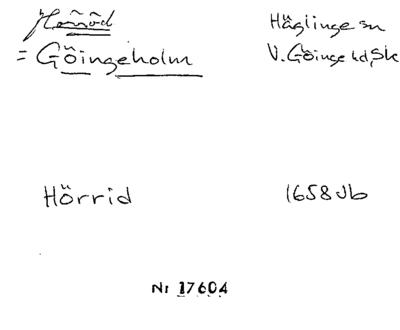 Häglinge sn
= Göingeholm V. Göinge hd, Sk
Hörrid 1658 Jb
Nr 17604